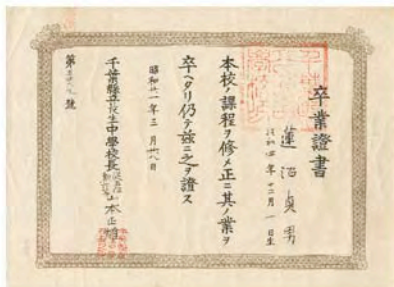 卒業證書
蓮沼貞男
昭和四年十二月一日生
本校ノ課程ヲ修メ正ニ其ノ業ヲ
卒ヘタリ仍テ茲ニ之ヲ證ス
昭和廿一年三月廿八日
千葉縣立長生中學校長 山本正雄
第 號